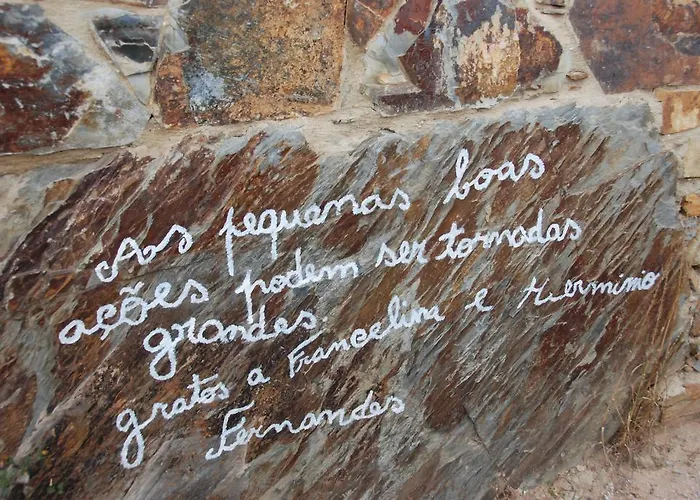 As pequenas boas
ações podem ser tornadas
grandes.
gratos a Francelina e Hermimio
Fernandes